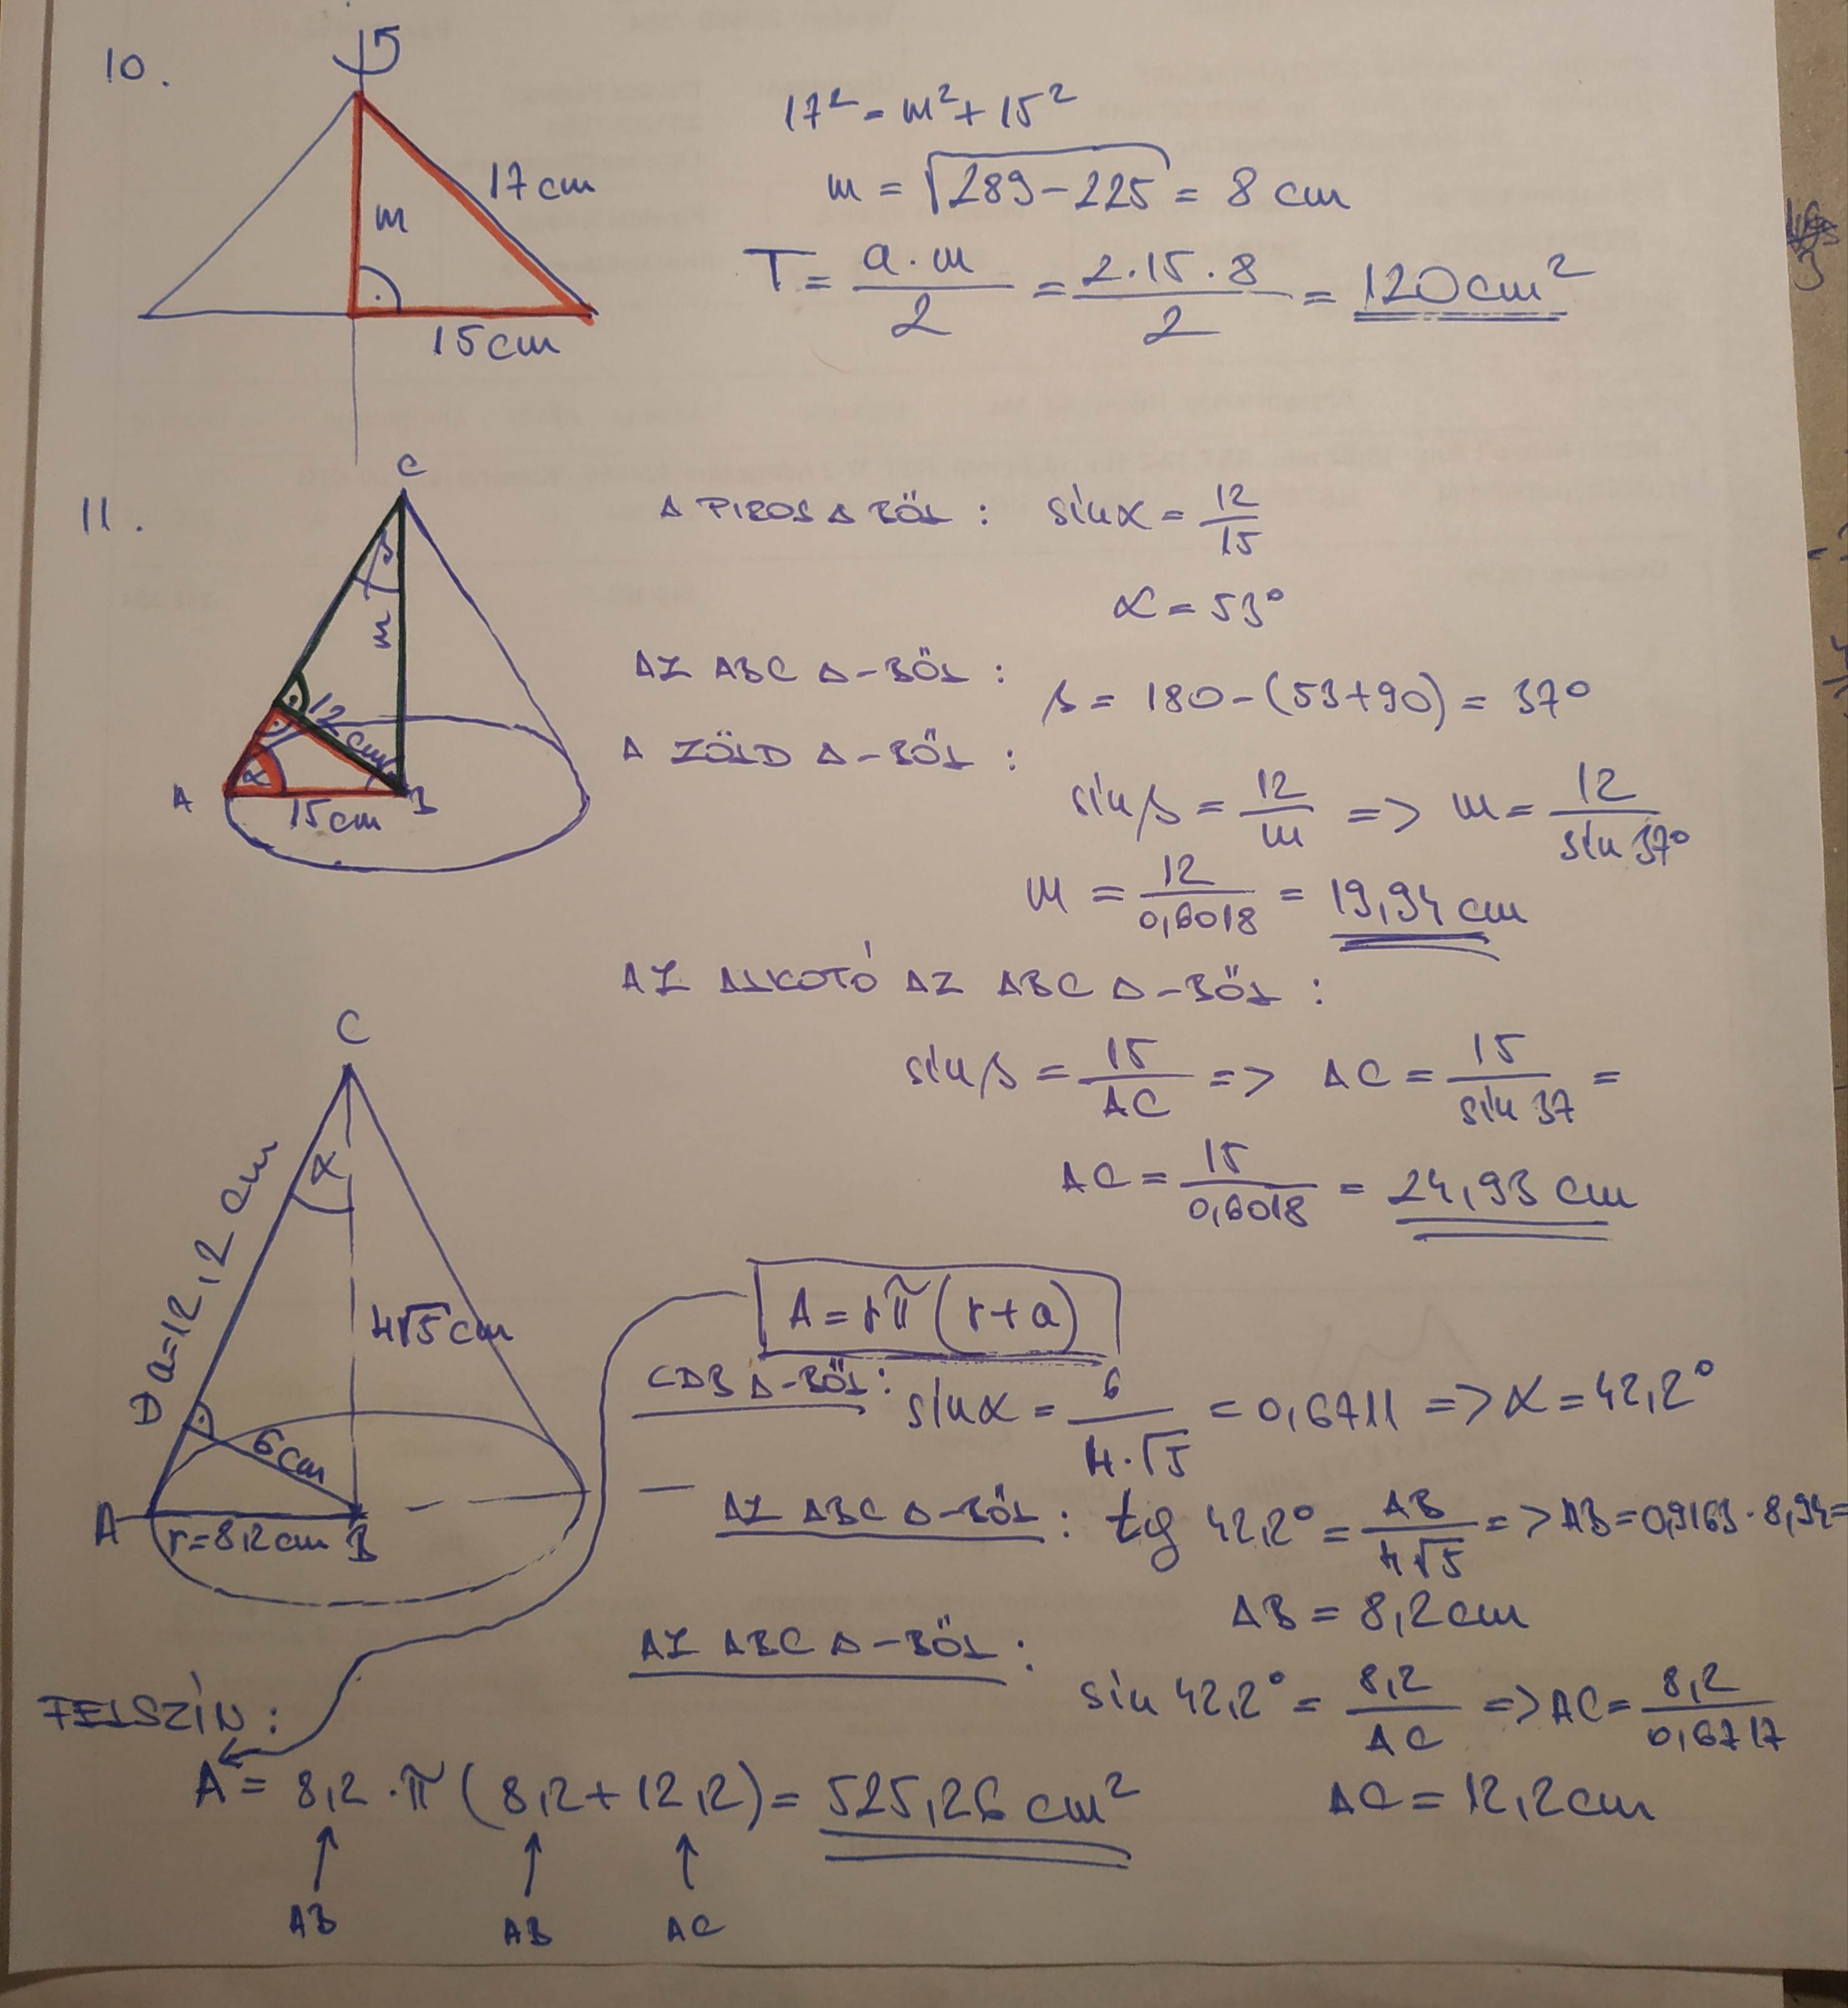 10.
17 cm
m
15 cm
17² = m² + 15²
m = √289-225 = 8 cm
T = a·m/2 = 2·15·8/2 = 120 cm²
11.
C
β
m
12 cm
α
A
15 cm
B
A PIROS Δ BŐL: sin α = 12/15
α = 53°
AZ ABC Δ-BŐL: β = 180 - (53+90) = 37°
A ZÖLD Δ-BŐL:
sin β = 12/m => m = 12/sin 37°
m = 12/0,6018 = 19,94 cm
AZ ALKOTÓ AZ ABC Δ-BŐL:
sin β = 15/AC => AC = 15/sin 37 =
AC = 15/0,6018 = 24,93 cm
C
α
a=12,2 cm
4√5 cm
D
6 cm
A
r=8,2 cm
B
A = rπ(r+a)
CDB Δ-BŐL: sin α = 6/4·√5 = 0,6711 => α = 42,2°
AZ ABC Δ-BŐL: tg 42,2° = AB/4√5 => AB = 0,9163·8,94 =
AB = 8,2 cm
AZ ABC Δ-BŐL:
sin 42,2° = 8,2/AC => AC = 8,2/0,6717
AC = 12,2 cm
FELSZÍN:
A = 8,2·π(8,2+12,2) = 525,26 cm²
AB AB AC